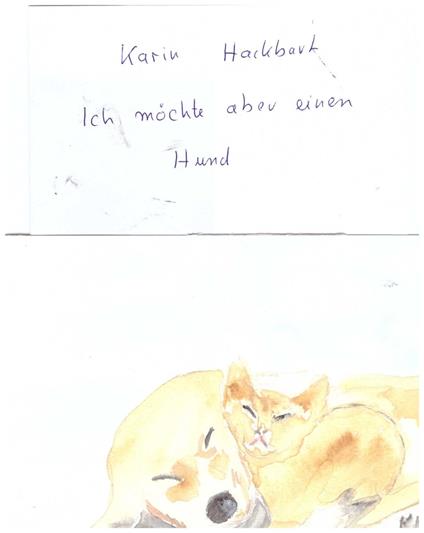 Karin Hackbart
Ich möchte aber einen
Hund